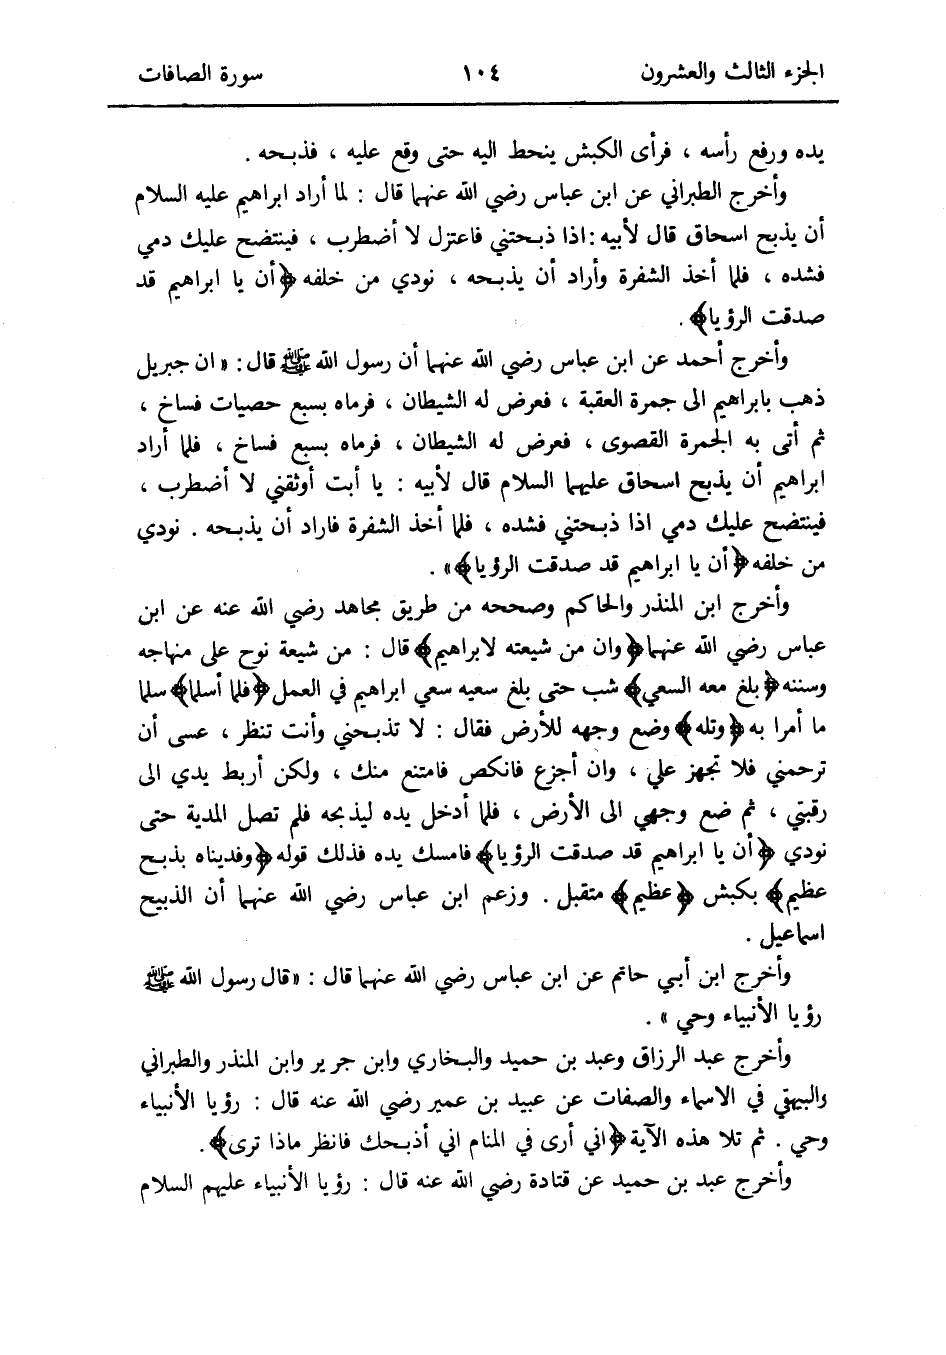 الجزء الثالث والعشرون ١٠٤ سورة الصافات
يده ورفع رأسه ، فرأى الكبش ينحط اليه حتى وقع عليه ، فذبحه .
وأخرج الطبراني عن ابن عباس رضي الله عنهما قال : لما أراد ابراهيم عليه السلام
أن يذبح اسحاق قال لأبيه : اذا ذبحتني فاعتزل لا أضطرب ، فينتضح عليك دمي
فشده ، فلما أخذ الشفرة وأراد أن يذبحه ، نودي من خلفه ﴿أن يا ابراهيم قد
صدقت الرؤيا﴾ .
وأخرج أحمد عن ابن عباس رضي الله عنهما أن رسول الله ﷺ قال : « ان جبريل
ذهب بابراهيم الى جمرة العقبة ، فعرض له الشيطان ، فرماه بسبع حصيات فساخ ،
ثم أتى به الجمرة القصوى ، فعرض له الشيطان ، فرماه بسبع فساخ ، فلما أراد
ابراهيم أن يذبح اسحاق عليهما السلام قال لأبيه : يا أبت أوثقني لا أضطرب ،
فينتضح عليك دمي اذا ذبحتني فشده ، فلما أخذ الشفرة فاراد أن يذبحه . نودي
من خلفه ﴿أن يا ابراهيم قد صدقت الرؤيا﴾» .
وأخرج ابن المنذر والحاكم وصححه من طريق مجاهد رضي الله عنه عن ابن
عباس رضي الله عنهما ﴿وان من شيعته لابراهيم﴾ قال : من شيعة نوح على منهاجه
وسننه ﴿بلغ معه السعي﴾ شب حتى بلغ سعيه سعي ابراهيم في العمل ﴿فلما أسلما﴾ سلما
ما أمرا به ﴿وتله﴾ وضع وجهه للأرض فقال : لا تذبحني وأنت تنظر ، عسى أن
ترحمني فلا تجهز علي ، وان أجزع فانكص فامتنع منك ، ولكن أربط يدي الى
رقبتي ، ثم ضع وجهي الى الأرض ، فلما أدخل يده ليذبحه فلم تصل المدية حتى
نودي ﴿أن يا ابراهيم قد صدقت الرؤيا﴾ فامسك يده فذلك قوله ﴿وفديناه بذبح
عظيم﴾ بكبش ﴿عظيم﴾ متقبل . وزعم ابن عباس رضي الله عنهما أن الذبيح
اسماعيل .
وأخرج ابن أبي حاتم عن ابن عباس رضي الله عنهما قال : « قال رسول الله ﷺ
رؤيا الأنبياء وحي » .
وأخرج عبد الرزاق وعبد بن حميد والبخاري وابن جرير وابن المنذر والطبراني
والبيهقي في الاسماء والصفات عن عبيد بن عمير رضي الله عنه قال : رؤيا الأنبياء
وحي . ثم تلا هذه الآية ﴿اني أرى في المنام اني أذبحك فانظر ماذا ترى﴾ .
وأخرج عبد بن حميد عن قتادة رضي الله عنه قال : رؤيا الأنبياء عليهم السلام